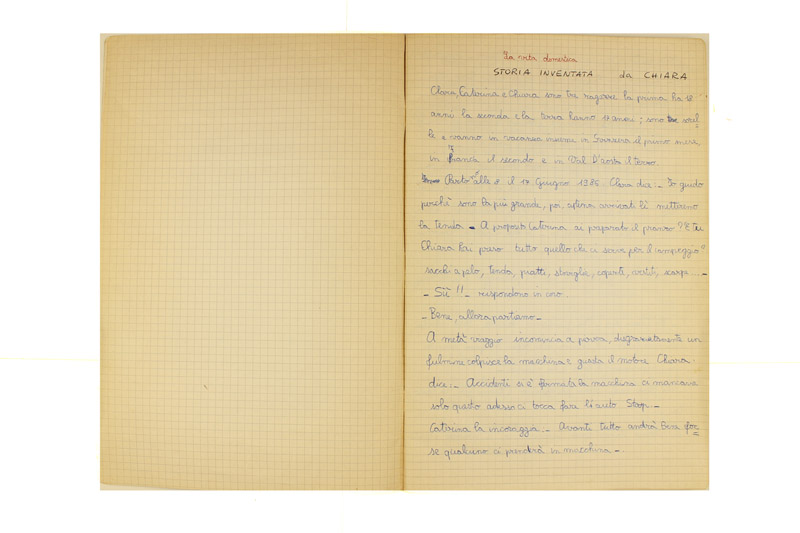 La vita domestica
STORIA INVENTATA da CHIARA
Clara, Caterina e Chiara sono tre ragazze la prima ha 18
anni la seconda e la terza hanno 17 anni; sono sorel
le e vanno in vacanza insieme in Svizzera il primo mese
in Francia il secondo e in Val D'aosta il terzo.
Parto alle 8 il 17 Giugno 1986. Clara dice: - Io guido
perchè sono la più grande, poi, appena arrivate lì metteremo
la tenda - A proposito Caterina ai preparato il pranzo? E tu
Chiara hai preso tutto quello che ci serve per il campeggio?
sacchi a pelo, tenda, piatti, stoviglie, coperte, vestiti, scarpe... -
- Sii!! - rispondono in coro.
- Bene, allora partiamo -
A metà viaggio incomincia a piovere, disgraziatamente un
fulmine colpisce la macchina e guasta il motore Chiara
dice: - Accidenti si è fermata la macchina ci mancava
solo questo adesso ci tocca fare l'auto Stop. -
Caterina la incoraggia. - Avanti tutto andrà bene for
se qualcuno ci prenderà in macchina -